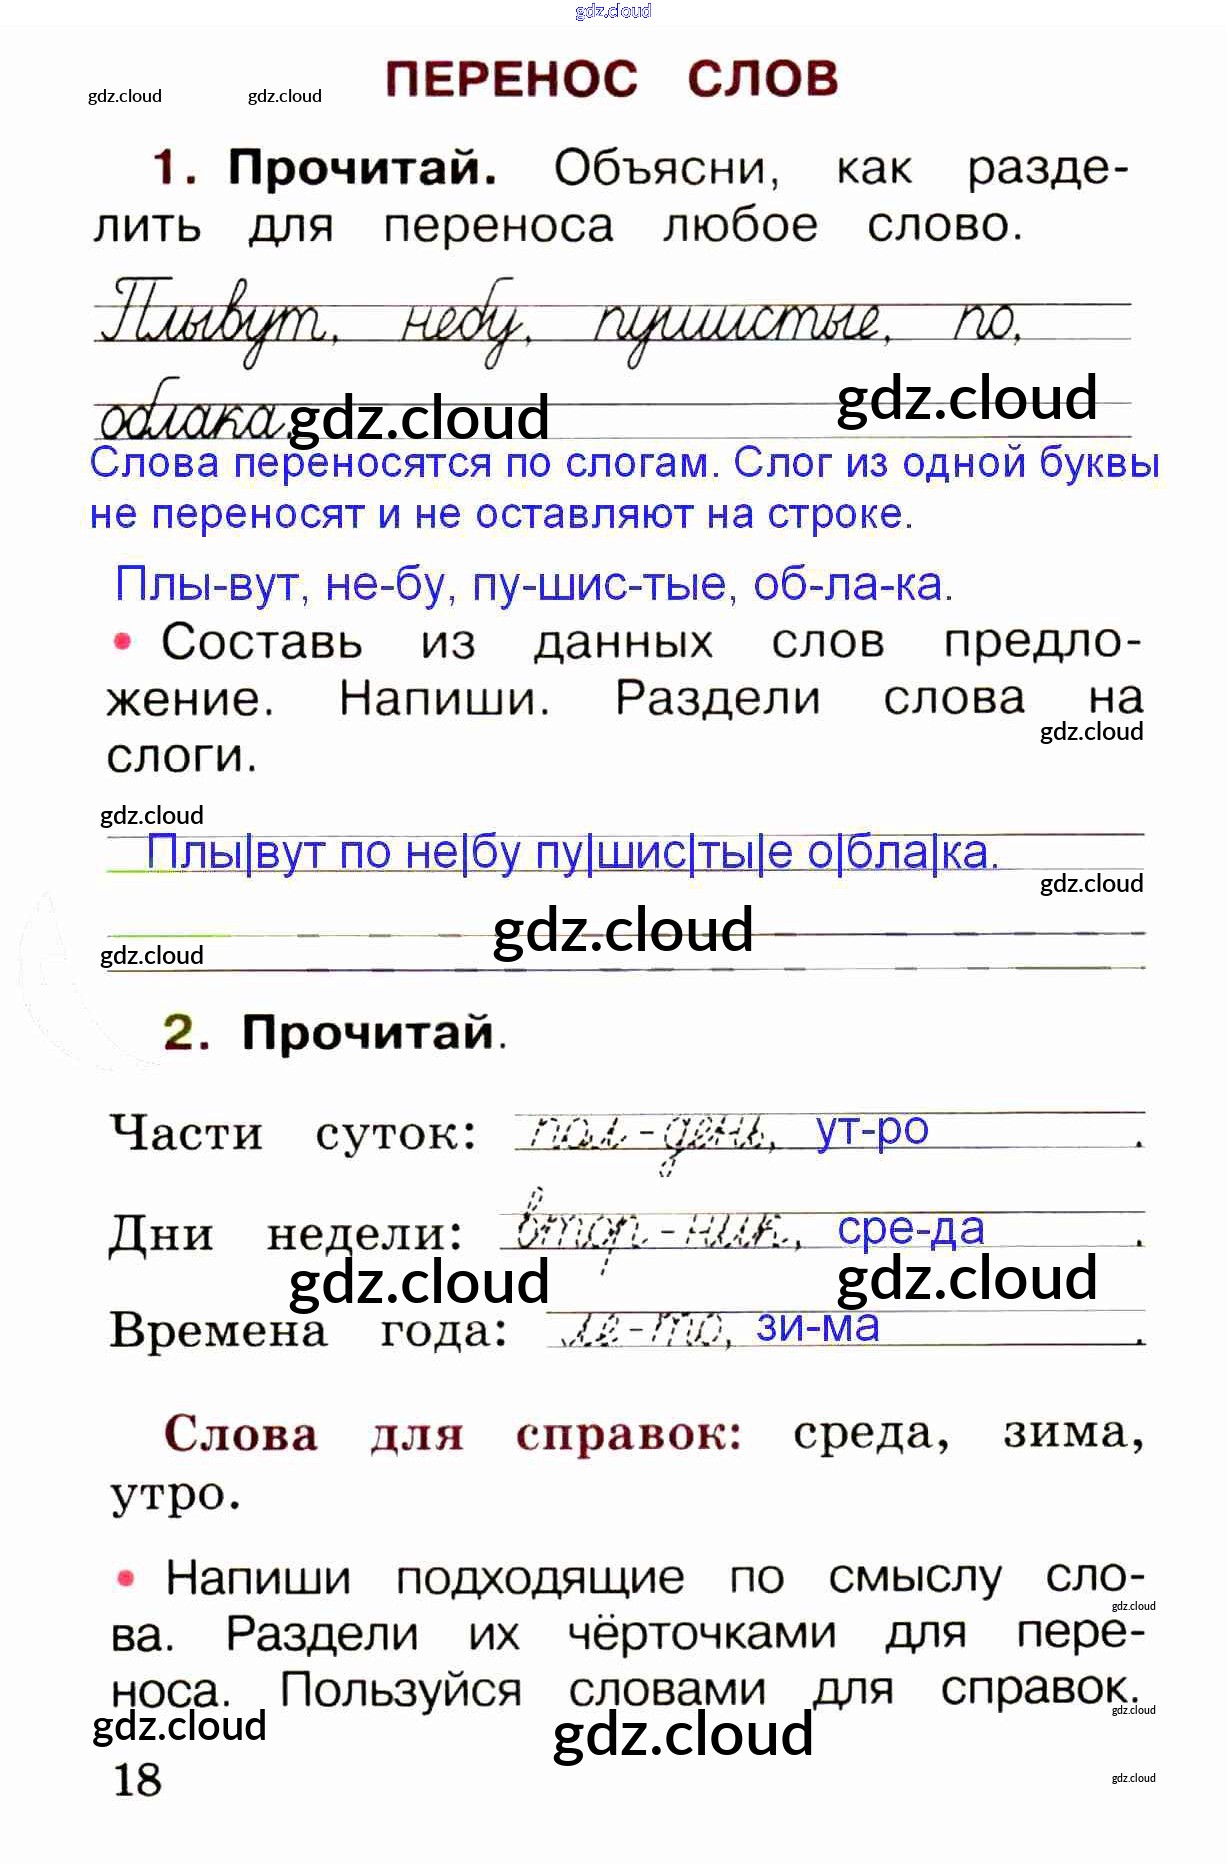 gdz.cloud
ПЕРЕНОС СЛОВ
gdz.cloud gdz.cloud
1. Прочитай. Объясни, как разде-
лить для переноса любое слово.
Плывут, небу, пушистые, по,
облака.
gdz.cloud gdz.cloud
Слова переносятся по слогам. Слог из одной буквы
не переносят и не оставляют на строке.
Плы-вут, не-бу, пу-шис-тые, об-ла-ка.
• Составь из данных слов предло-
жение. Напиши. Раздели слова на
gdz.cloud
слоги.
gdz.cloud
Плы|вут по не|бу пу|шис|ты|е о|бла|ка.
gdz.cloud
gdz.cloud
gdz.cloud
2. Прочитай.
Части суток: пол-день, ут-ро.
Дни недели: втор-ник, сре-да.
gdz.cloud gdz.cloud
Времена года: ле-то, зи-ма.
Слова для справок: среда, зима,
утро.
• Напиши подходящие по смыслу сло-
gdz.cloud
ва. Раздели их чёрточками для пере-
носа. Пользуйся словами для справок.
gdz.cloud
gdz.cloud gdz.cloud
18
gdz.cloud